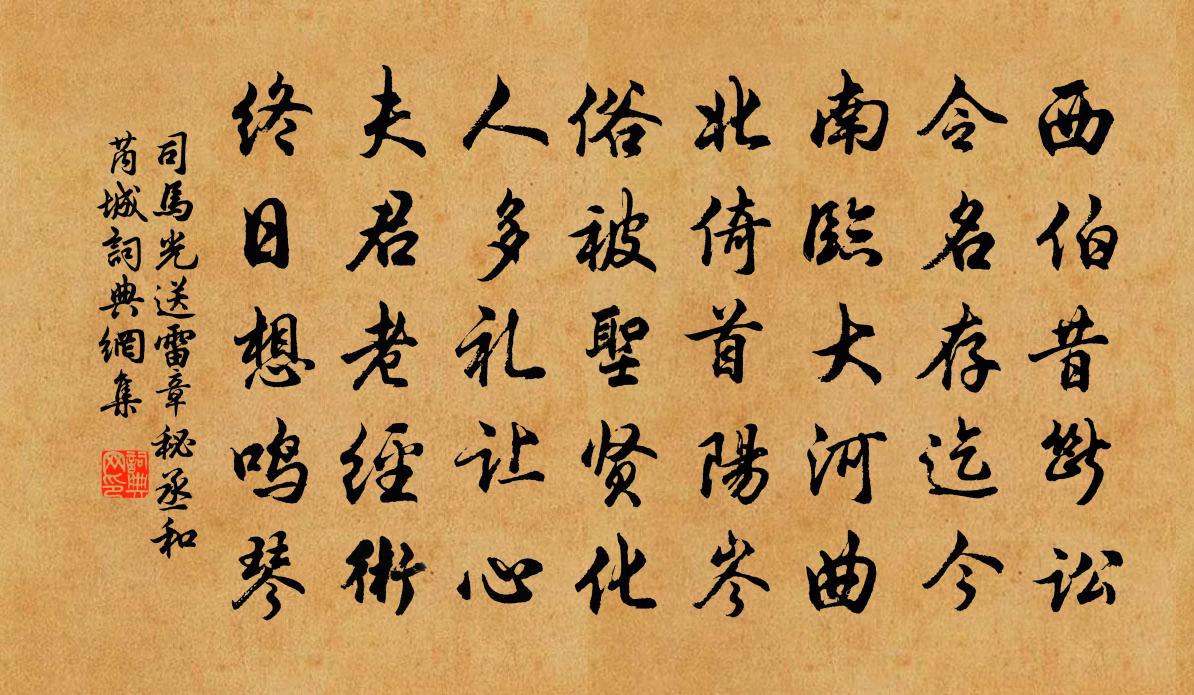 西伯昔断讼
令名存迄今
南臨大河曲
北倚首陽岑
俗被聖贤化
人多礼让心
夫君老經術
终日想鸣琴
司馬光送雷章秘丞和
芮城詞典網集
詞典网印